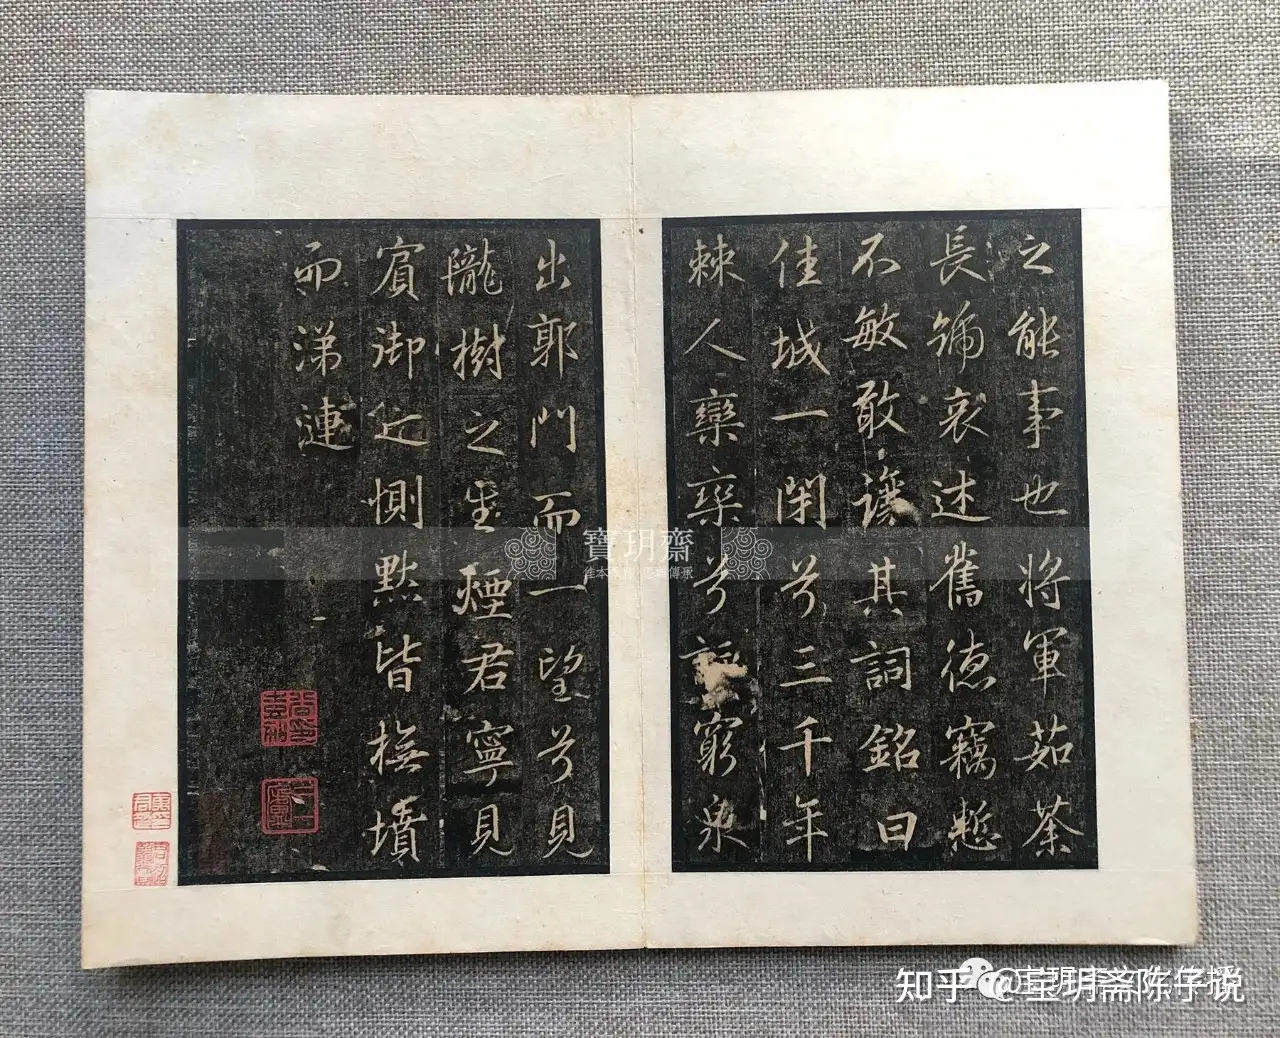 之能事也將軍茹荼
長號哀述舊德竊慙
不敏敢讓其詞銘曰
佳城一閉兮三千年
棘人欒欒兮訴窮泉
出郭門而一望兮見
隴樹之生煙君寧見
賓御之惻默皆撫墳
而涕漣
寶玥齋
知乎 @宝玥斋陈仔说